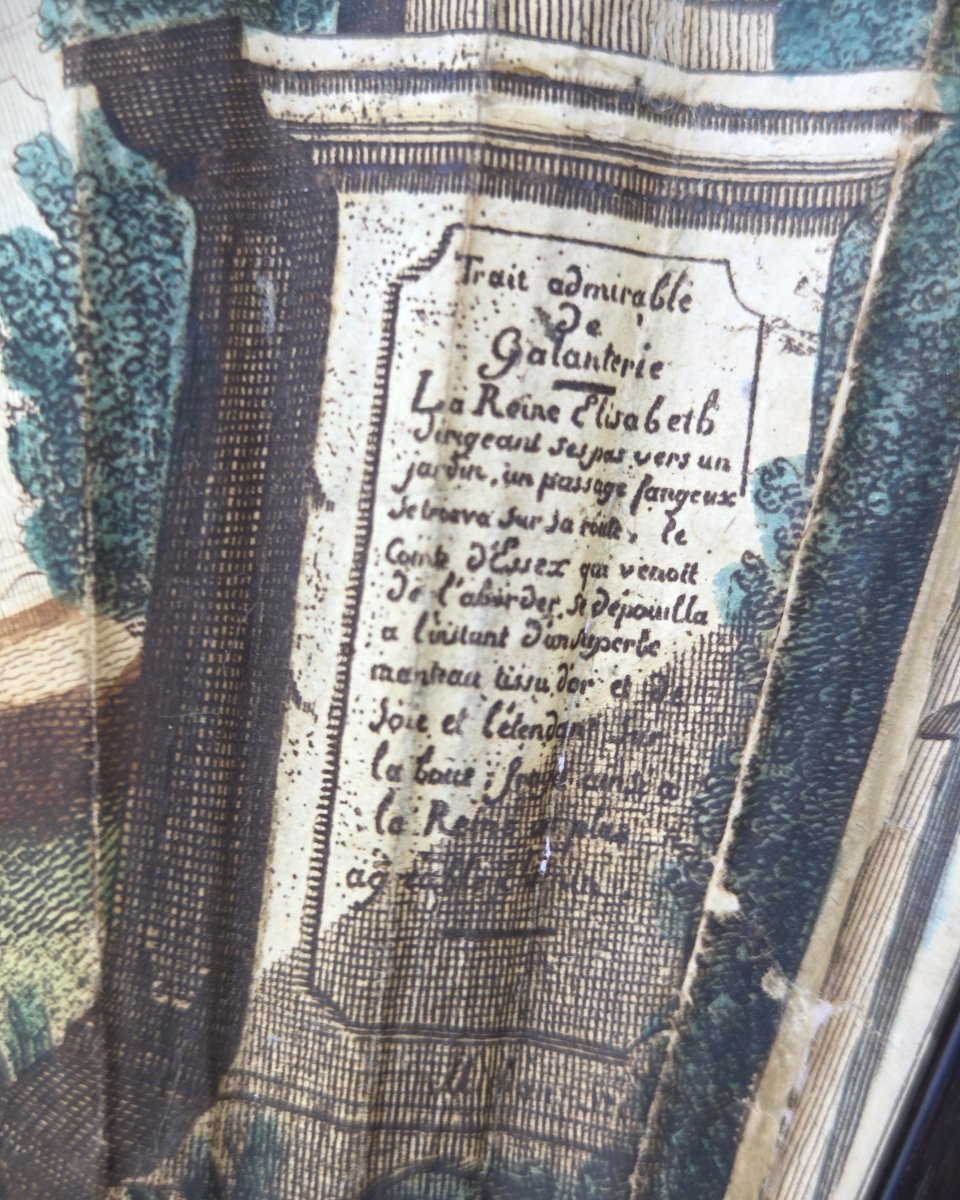 Trait admirable
de
Galanterie
La Reine Elisabeth
Dirigeant ses pas vers un
jardin, un passage fangeux
se trouva sur sa route, le
Comte d'Essex qui venoit
de l'aborder, se dépouilla
a l'instant d'un superbe
manteau tissu d'or et de
soie et l'étendant sur
la boue, fraya ainsi a
la Reine